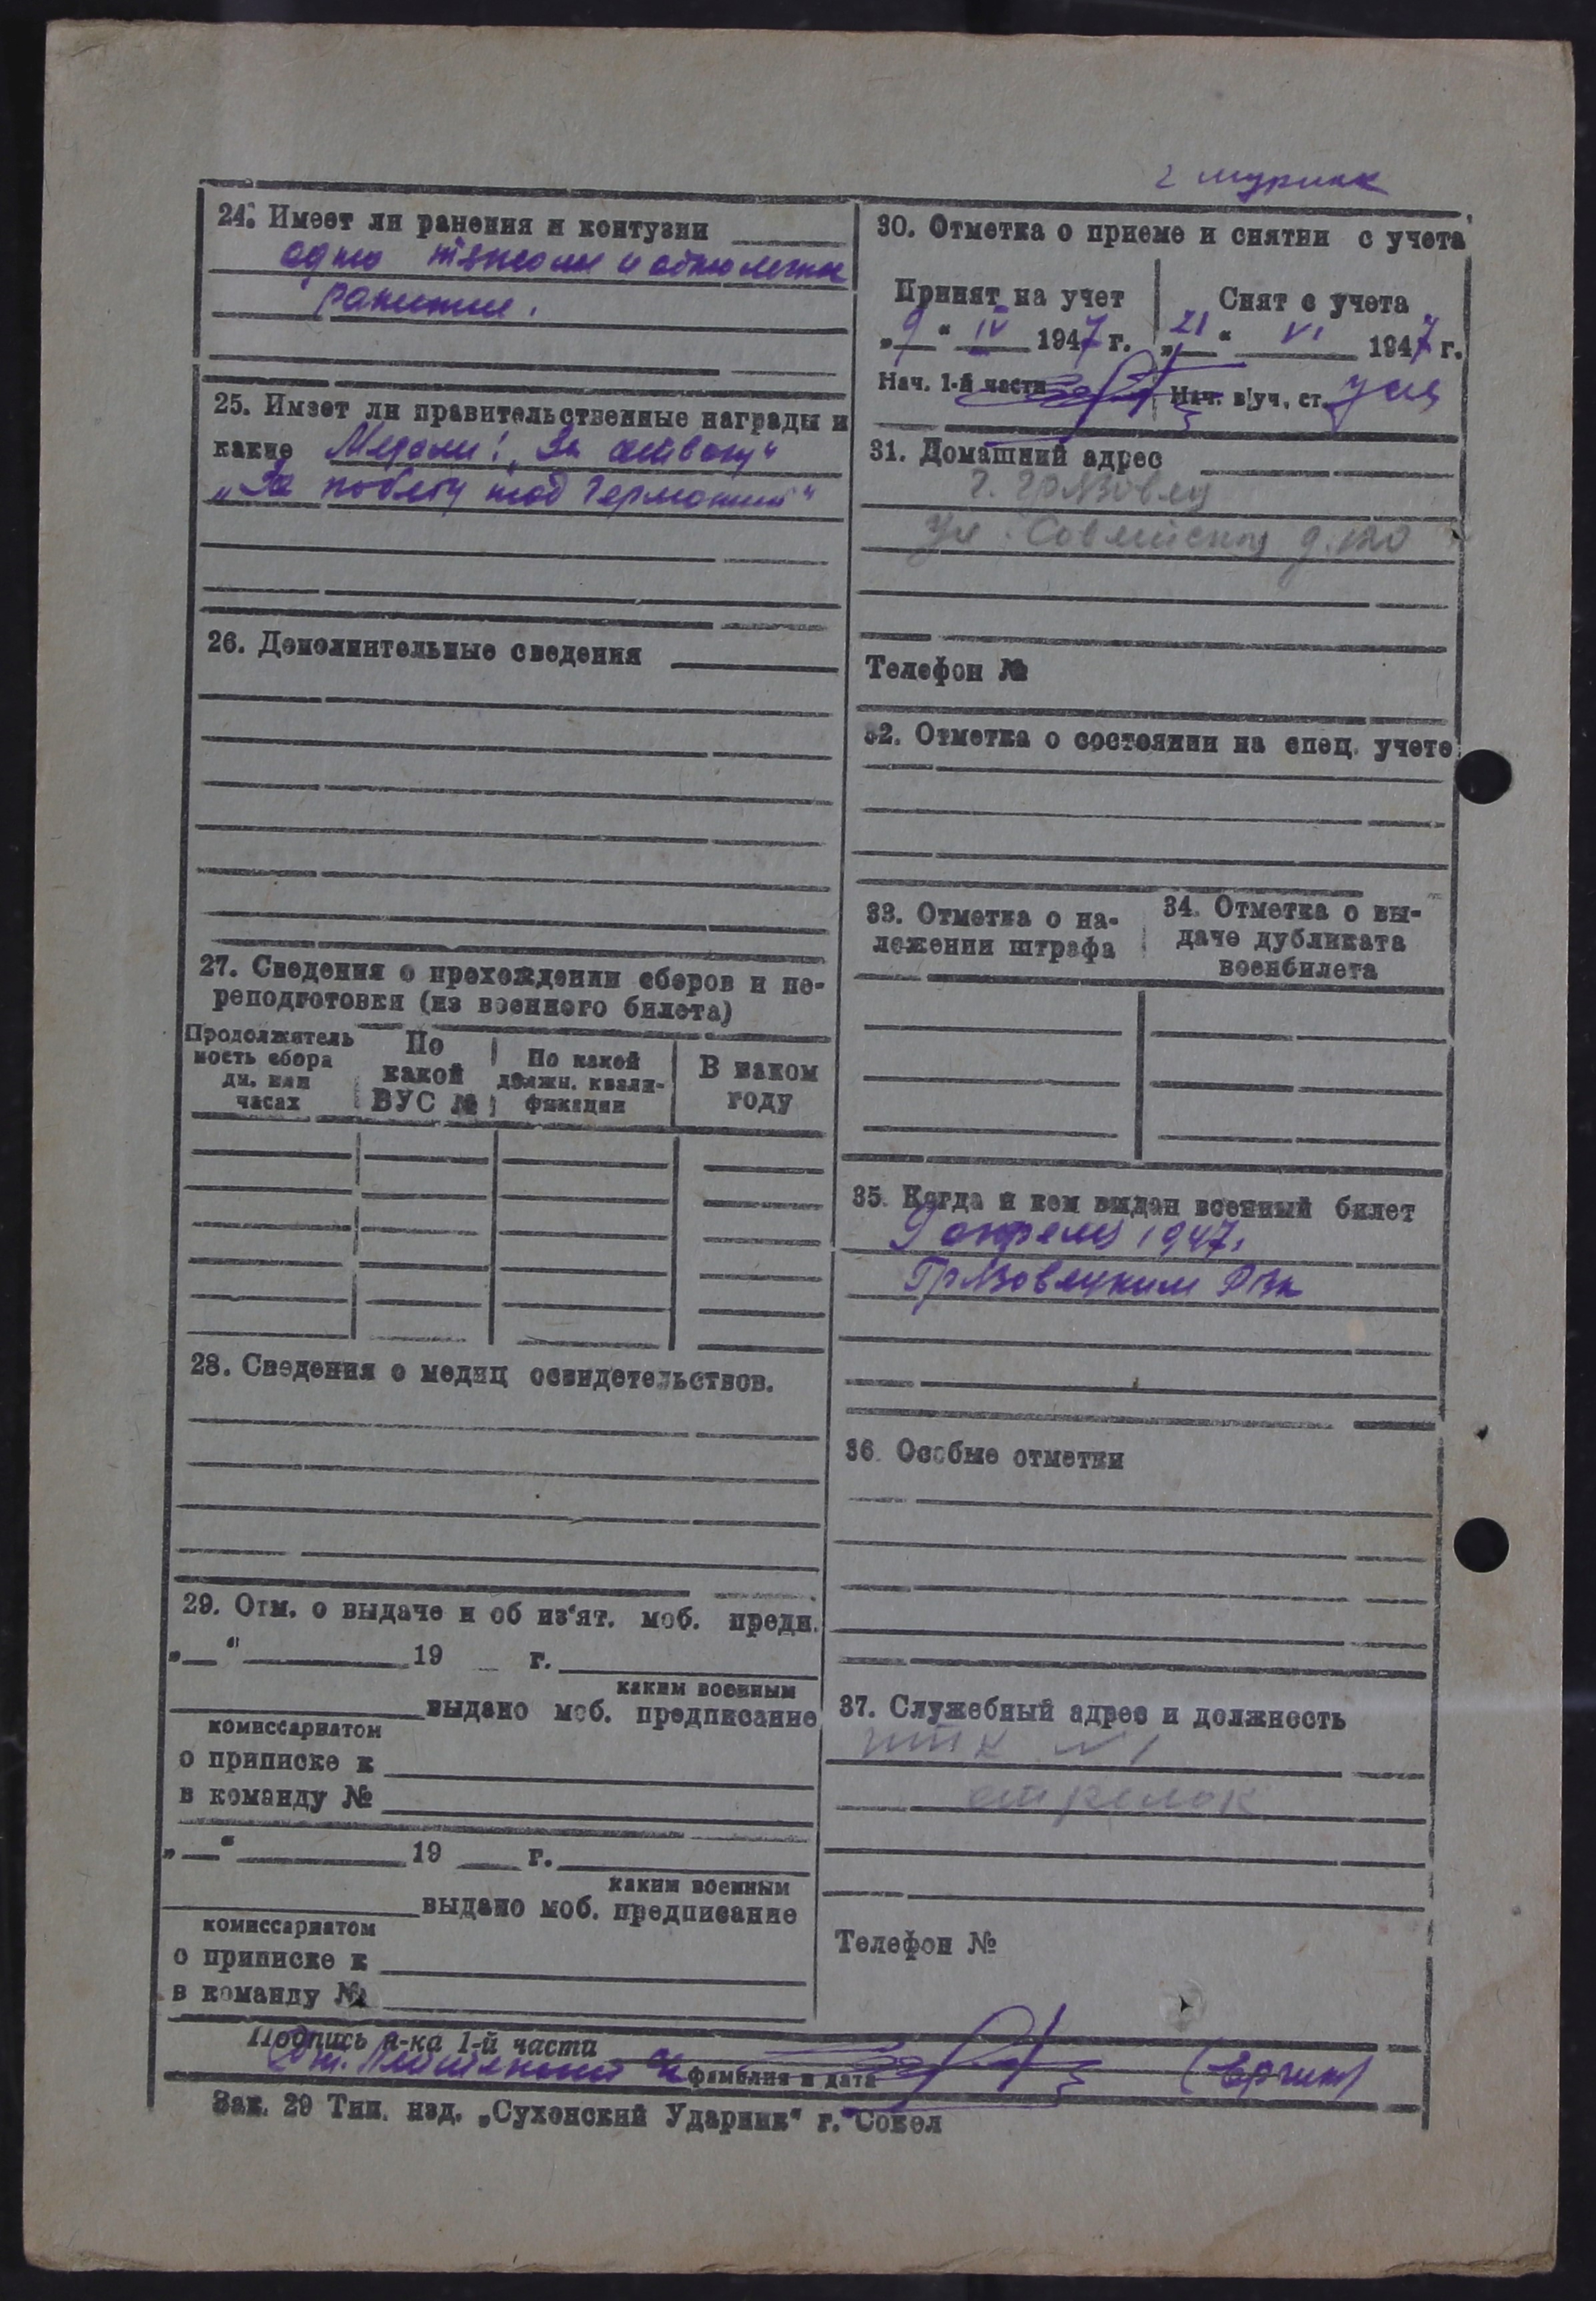 24. Имеет ли ранения и контузии
одно тяжелое и одно легкое
ранение.
25. Имеет ли правительственные награды и
какие Медали: „За отвагу“
„За победу над Германией“
26. Дополнительные сведения
27. Сведения о прохождении сборов и пе-
реподготовки (из военного билета)
Продолжитель
ность сбора
дн. или
часах
По
какой
ВУС №
По какой
должн. квали-
фикации
В каком
году
28. Сведения о медиц освидетельствов.
29. Отм. о выдаче и об из'ят. моб. предп.
„ “ 19 г.
каким военным
выдано моб. предписание
комиссариатом
о приписке к
в команду №
„ “ 19 г.
каким военным
выдано моб. предписание
комиссариатом
о приписке к
в команду №
30. Отметка о приеме и снятии с учета
Принят на учет
„9“ IV 1947 г.
Нач. 1-й части
Снят с учета
„21“ VI 1947 г.
Нач. в/уч. ст.
31. Домашний адрес
г. Грязовец
ул. Советская д. 120
Телефон №
32. Отметка о состоянии на спец. учете
33. Отметка о на-
ложении штрафа
34. Отметка о вы-
даче дубликата
военбилета
35. Когда и кем выдан военный билет
9 апреля 1947.
Грязовецким РВК
36. Особые отметки
37. Служебный адрес и должность
ИТК №1
стрелок
Телефон №
Подпись н-ка 1-й части
фамилия и дата
Зак. 29 Тип. изд. „Сухонский Ударник“ г. Сокол